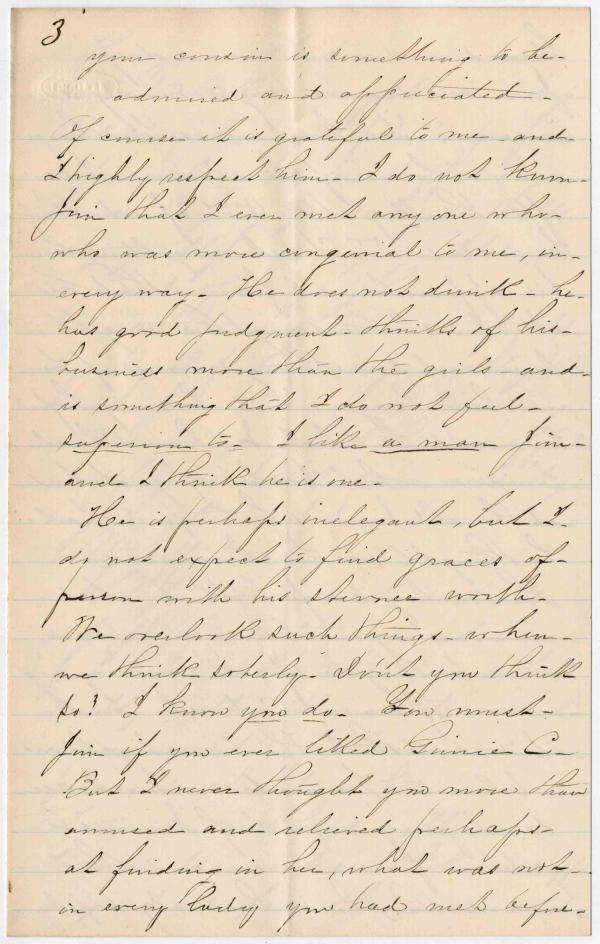 3
your cousin is something to be-
admired and appreciated-
Of course it is grateful to me and-
I highly respect him- I do not know-
Jim that I ever met any one who-
who was more congenial to me, in-
every way- He does not drink- he-
has good judgment- thinks of his-
business more than the girls- and-
is something that I do not feel-
superior to- I like a man Jim-
and I think he is one-
He is perhaps inelegant, but I-
do not expect to find graces of-
person with his sterner worth-
We overlook such things- when-
we think soberly- Don't you think
so? I know you do- You must-
Jim if you ever liked Ginnie C-
But I never thought you more than
amused and relieved perhaps-
at finding in her, what was not-
in every lady you had met before-